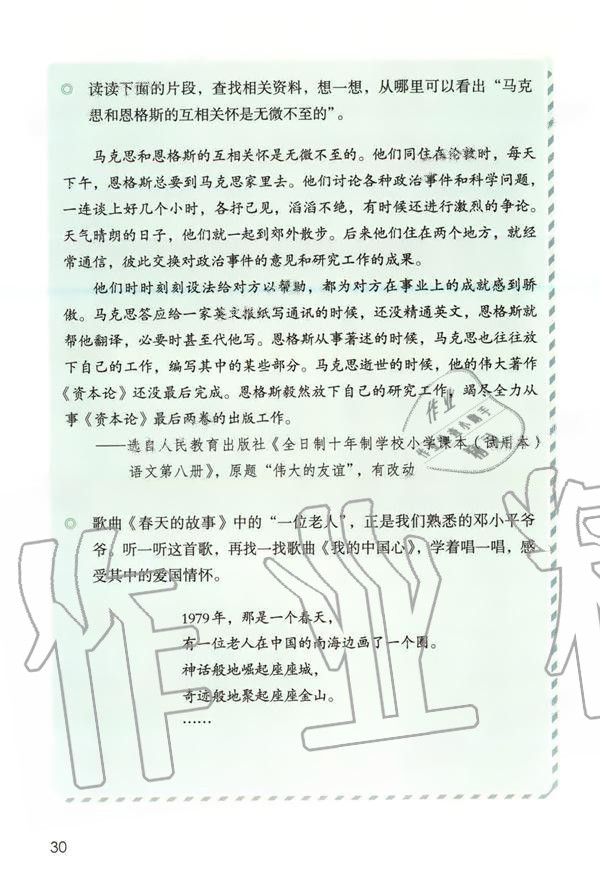 ◎ 读读下面的片段，查找相关资料，想一想，从哪里可以看出“马克
思和恩格斯的互相关怀是无微不至的”。
马克思和恩格斯的互相关怀是无微不至的。他们同住在伦敦时，每天
下午，恩格斯总要到马克思家里去。他们讨论各种政治事件和科学问题，
一连谈上好几个小时，各抒己见，滔滔不绝，有时候还进行激烈的争论。
天气晴朗的日子，他们就一起到郊外散步。后来他们住在两个地方，就经
常通信，彼此交换对政治事件的意见和研究工作的成果。
他们时时刻刻设法给对方以帮助，都为对方在事业上的成就感到骄
傲。马克思答应给一家英文报纸写通讯的时候，还没精通英文，恩格斯就
帮他翻译，必要时甚至代他写。恩格斯从事著述的时候，马克思也往往放
下自己的工作，编写其中的某些部分。马克思逝世的时候，他的伟大著作
《资本论》还没最后完成。恩格斯毅然放下自己的研究工作，竭尽全力从
事《资本论》最后两卷的出版工作。
——选自人民教育出版社《全日制十年制学校小学课本（试用本）
语文第八册》，原题“伟大的友谊”，有改动
◎ 歌曲《春天的故事》中的“一位老人”，正是我们熟悉的邓小平爷
爷。听一听这首歌，再找一找歌曲《我的中国心》，学着唱一唱，感
受其中的爱国情怀。
1979年，那是一个春天，
有一位老人在中国的南海边画了一个圈。
神话般地崛起座座城，
奇迹般地聚起座座金山。
……
30
作业